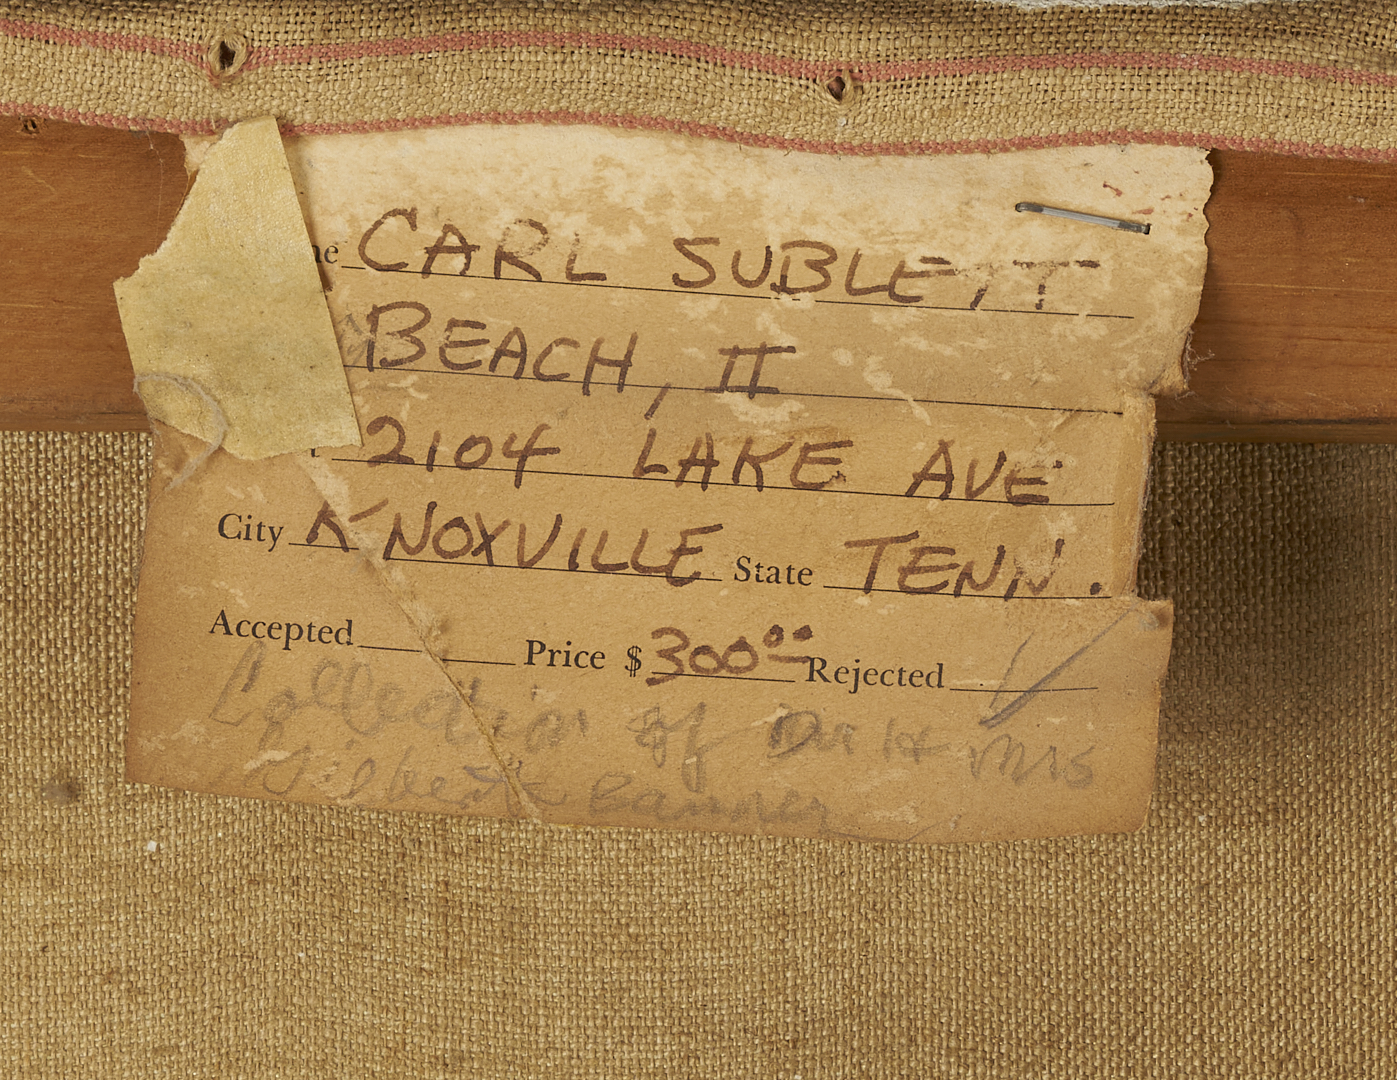 ne CARL SUBLETT
BEACH, II
t 2104 LAKE AVE
City KNOXVILLE State TENN.
Accepted Price $ 300.00 Rejected
Collection of Dr & Mrs
Gilbert